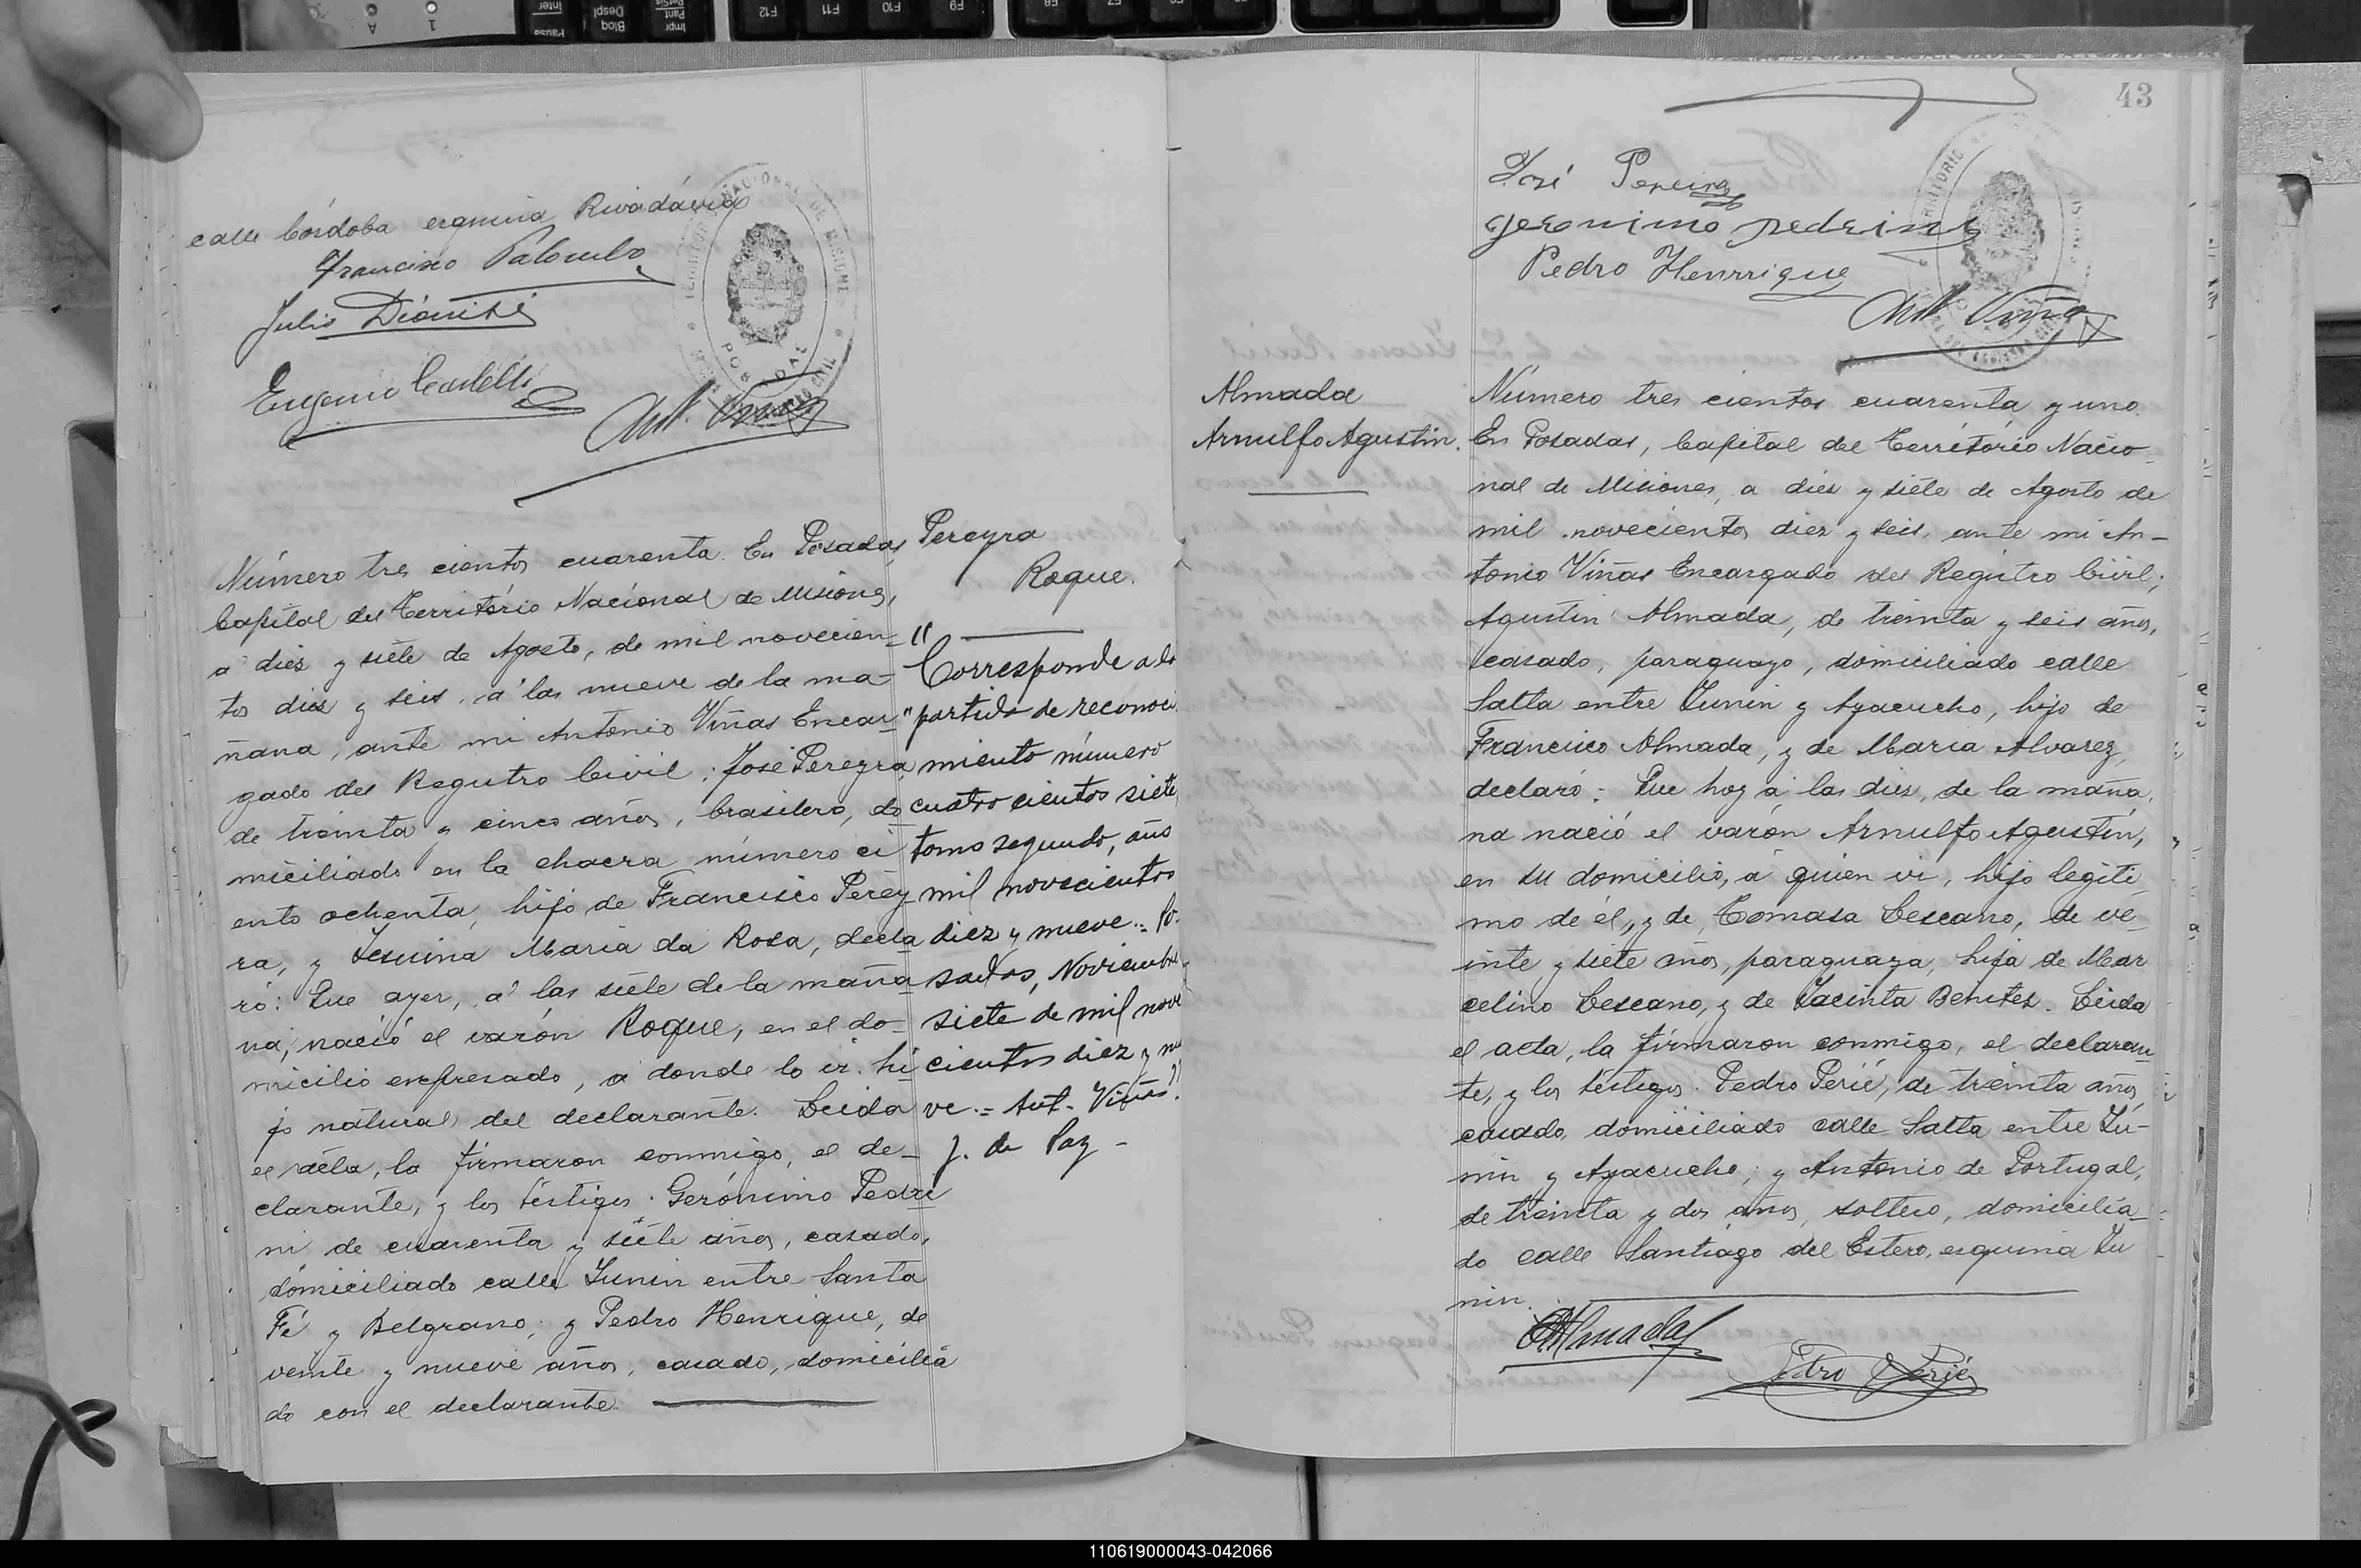 calle Córdoba esquina Rivadávia
Francisco Palombo
Julio
Eugenio Castelli
Ant. Viñas
Número tres cientos cuarenta. En Posadas,
Capital del Território Nacional de Misiones,
a diez y siete de Agosto, de mil novecien-
tos diez y seis, a las nueve de la ma-
ñana, ante mi Antonio Viñas Encar-
gado del Registro Civil; José Pereyra,
de treinta y cinco años, brasilero, do-
miciliado en la chacra número ci-
ento ochenta, hijo de Francisco Perey-
ra, y Jesuina Maria da Rosa, decla-
ró: Que ayer, a las siete de la maña-
na, nació el varón Roque, en el do-
micilio expresado, a donde lo vi. hi-
jo natural del declarante. Leida
el acta, la firmaron conmigo, el de-
clarante, y los testigos. Gerónimo Pedri-
ni de cuarenta y siete años, casado,
domiciliado calle Junin entre Santa
Fé y Belgrano; y Pedro Henrique, de
veinte y nueve años, casado, domicilia
do con el declarante.
Pereyra
Roque.
"Corresponde a la
"partida de reconoci
miento número
cuatro cientos siete,
tomo segundo, año
mil novecientos
diez y nueve.= Po-
sadas, Noviembre
siete de mil nove
cientos diez y nue
ve.= Ant. Viñas."
J. de Paz -
43
José Pereira
Geronimo Pedrini
Pedro Henrrique
Ant. Viñas
Almada
Arnulfo Agustin.
Número tres cientos cuarenta y uno.
En Posadas, Capital del Território Nacio-
nal de Misiones, a diez y siete de Agosto de
mil novecientos diez y seis, ante mi An-
tonio Viñas Encargado del Registro Civil;
Agustin Almada, de treinta y seis años,
casado, paraguayo, domiciliado calle
Salta entre Junin y Ayacucho, hijo de
Francisco Almada, y de Maria Alvarez,
declaró: Que hoy a las diez, de la maña-
na nació el varón Arnulfo Agustin,
en su domicilio, a quien vi, hijo legiti-
mo de él, y de Tomasa Lescano, de ve-
inte y siete años, paraguaya, hija de Mar
celino Lescano, y de Jacinta Benitez. Leida
el acta, la firmaron conmigo, el declaran-
te, y los testigos. Pedro Perié, de treinta años,
casado, domiciliado calle Salta entre Ju-
nin y Ayacucho; y Antonio de Portugal,
de treinta y dos años, soltero, domicilia-
do calle Santiago del Estero, esquina Ju
nin.
Almada
Pedro Perié
110619000043-042066